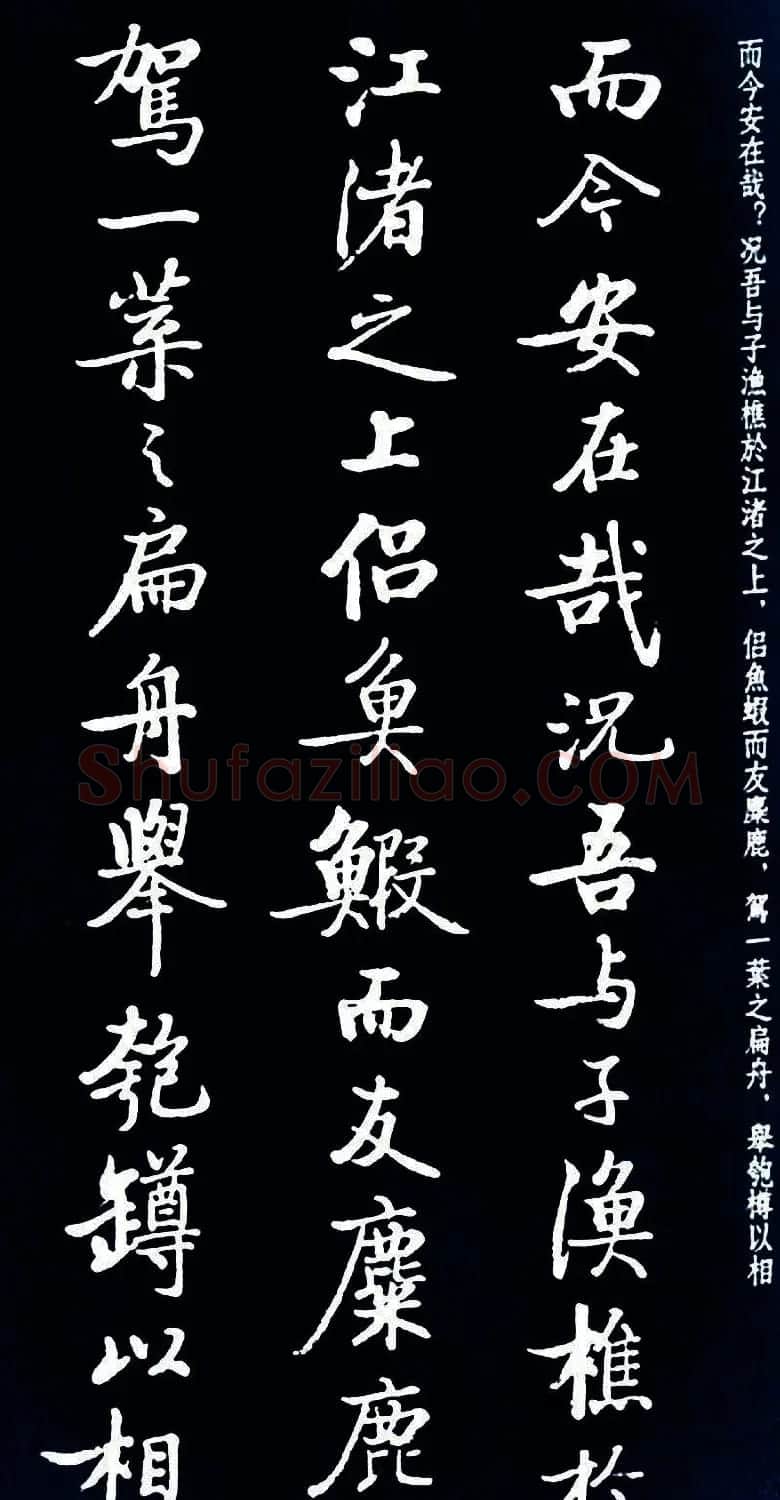 而今安在哉？况吾与子渔樵於江渚之上，侣魚蝦而友麋鹿，駕一葉之扁舟，舉匏樽以相
而今安在哉况吾与子渔樵於
江渚之上侣魚鰕而友麋鹿
駕一葉之扁舟舉匏罇以相
Shufaziliao.COM